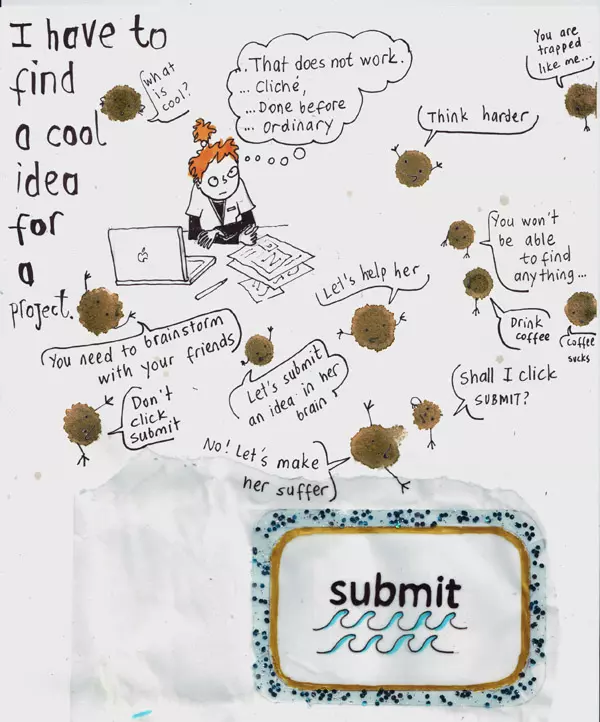 I have to
find
a cool
idea
for
a
project.
What
is
cool?
... That does not work.
... Cliché,
... Done before
... Ordinary
You are
trapped
like me...
Think harder
You won't
be able
to find
anything...
Let's help her
Drink
coffee
Coffee
sucks
You need to brainstorm
with your friends
Let's submit
an idea in her
brain
Shall I click
SUBMIT?
Don't
click
submit
No! Let's make
her suffer
submit